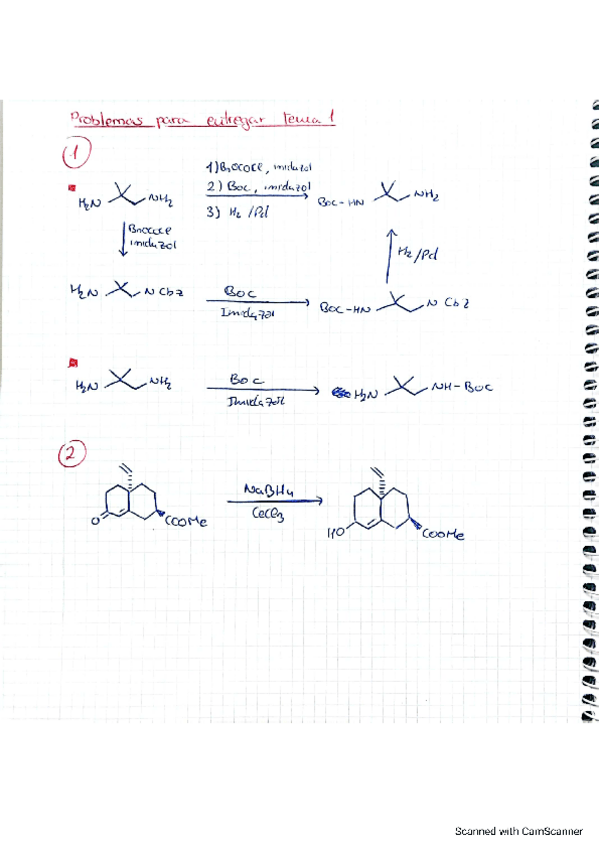 Problemas para entregar tema 1
1
1) BnOCOCl, imidazol
2) Boc, imidazol
3) H2/Pd
H2N NH2
Boc-HN NH2
BnOCOCl
imidazol
H2/Pd
H2N N Cbz
Boc
Imidazol
Boc-HN N Cbz
H2N NH2
Boc
Imidazol
H2N NH-Boc
2
NaBH4
CeCl3
O COOMe
HO COOMe
Scanned with CamScanner